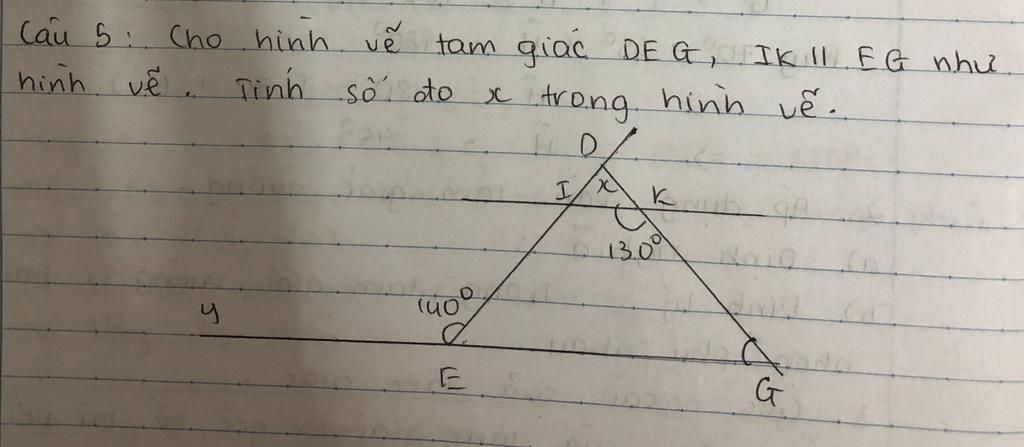 Câu 5: Cho hình vẽ tam giác DEG, IK // EG như
hình vẽ. Tính số đo x trong hình vẽ.
D
I x K
130°
140°
y
E
G